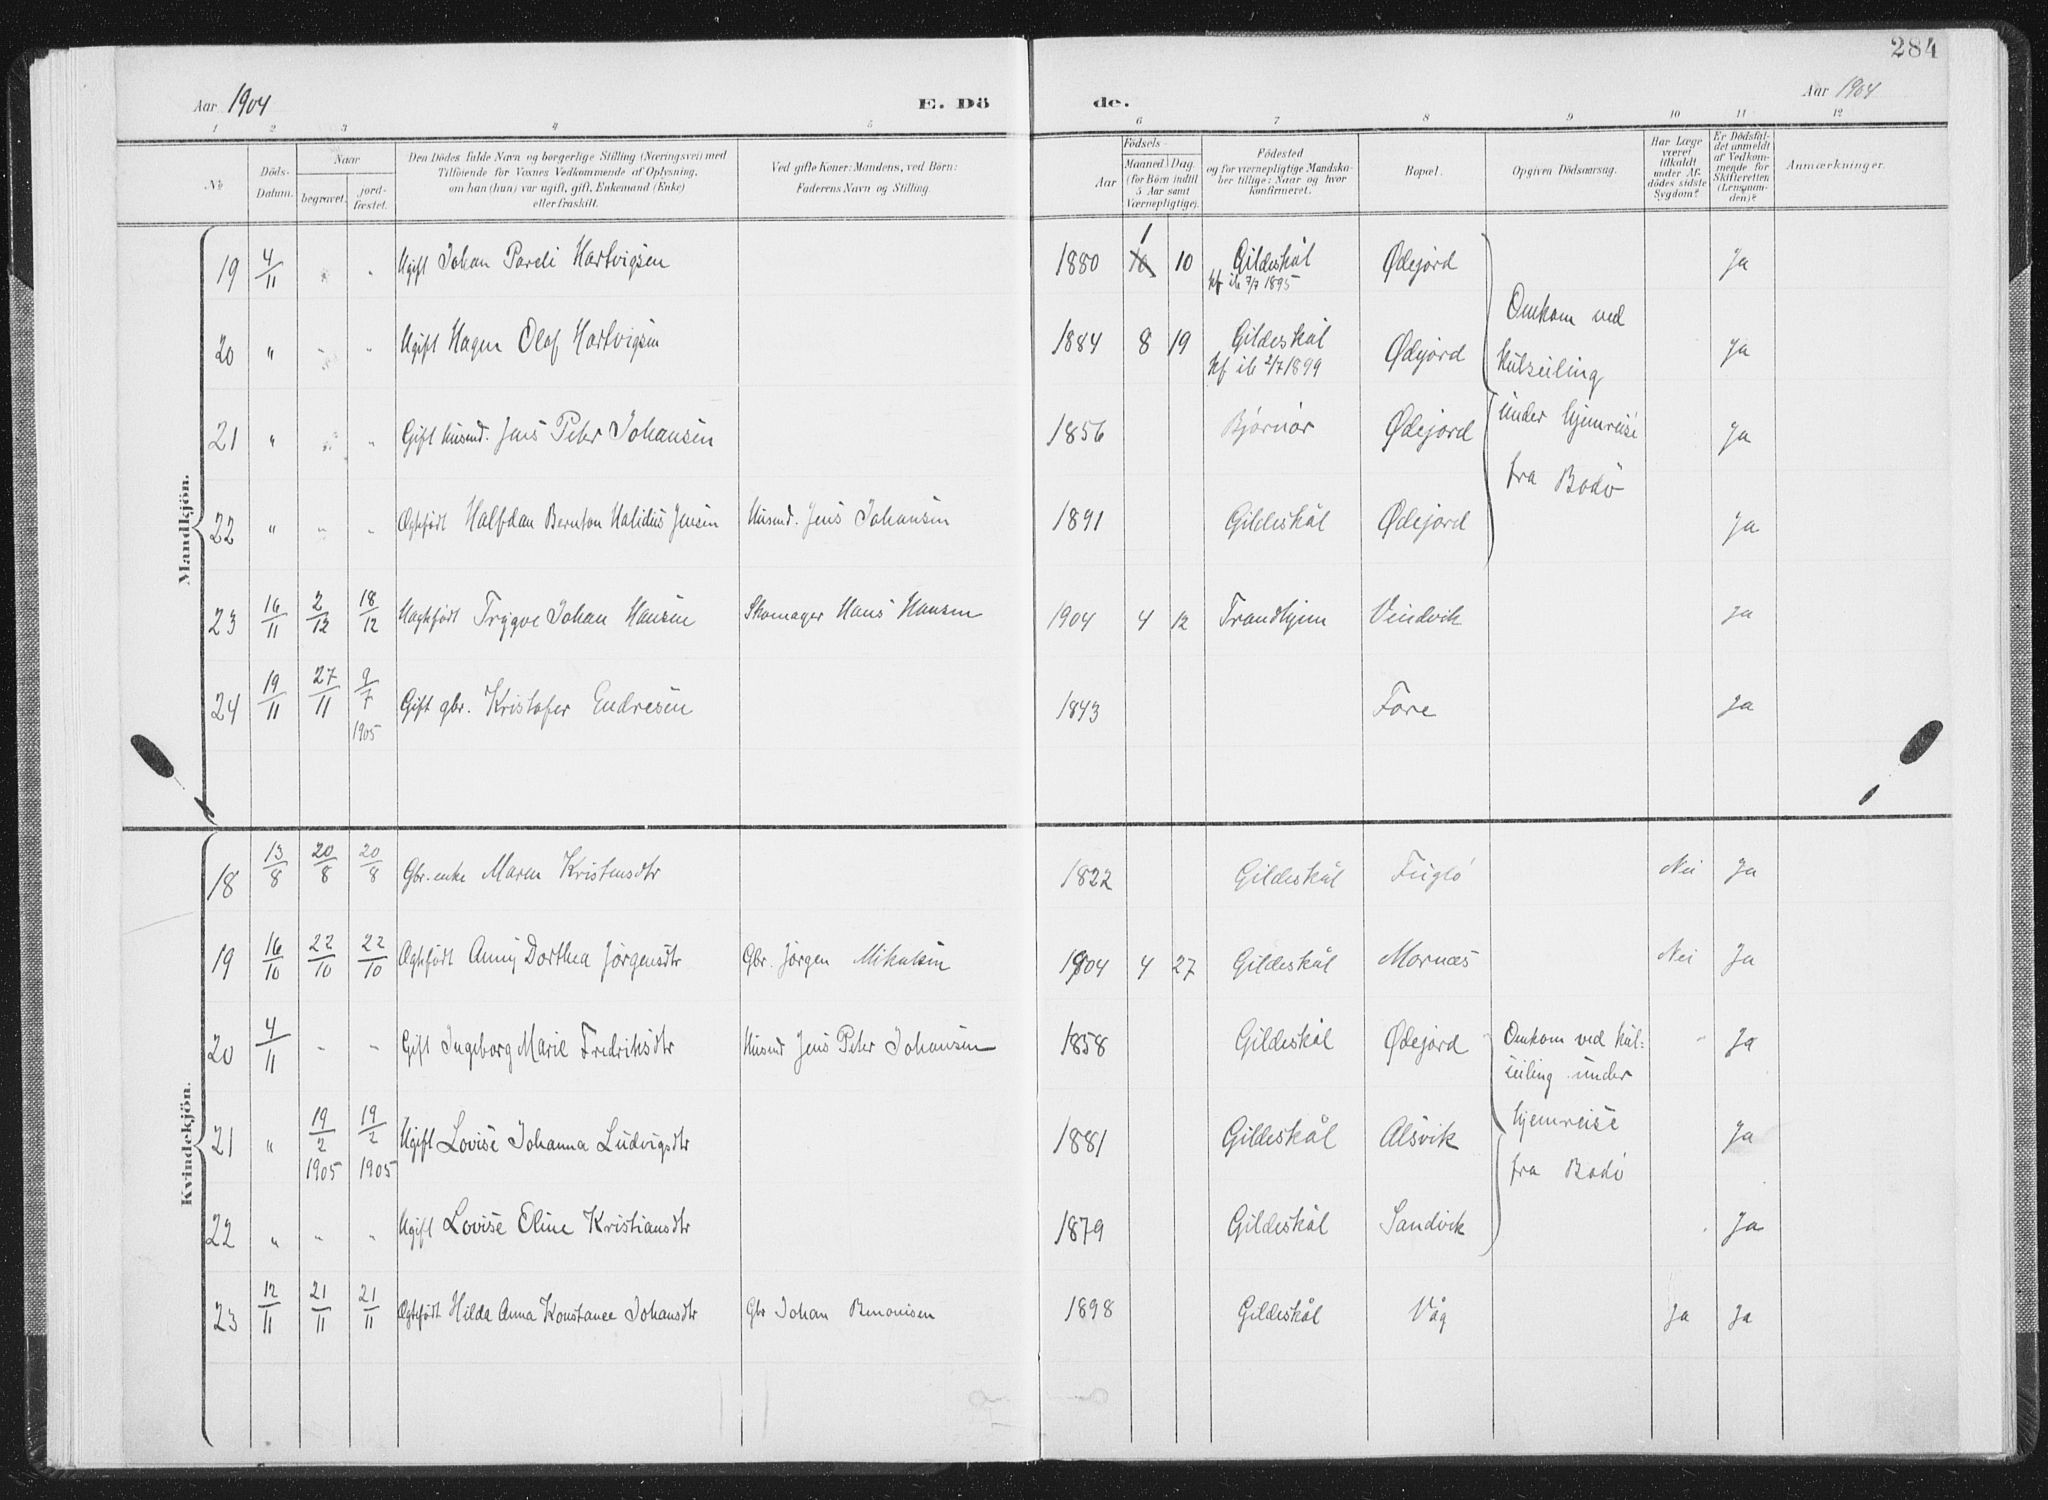 284
Aar 1904 E. Dö de. Aar 1904
1 2 3 4 5 6 7 8 9 10 11 12
№ Döds-Datum. Naar begravet. jord-fæstet. Den Dödes fulde Navn og borgerlige Stilling (Næringsvei) med Tilföiende for Voxnes Vedkommende af Oplysning, om han (hun) var ugift, gift, Enkemand (Enke) eller fraskilt. Ved gifte Koner: Mandens, ved Börn: Faderens Navn og Stilling. Födsels- Aar Maaned Dag (for Börn indtil 5 Aar samt Værnepligtige). Födested og for værnepligtige Mandskaber tillige: Naar og hvor konfirmeret. Bopæl. Opgiven Dödsaarsag. Har Læge været tilkaldt under Afdödes sidste Sygdom? Er Dödsfaldet anmeldt af Vedkommende for Skifteretten (Lensmanden)? Anmærkninger.
Mandkjön.
19 4/11 " " Ugift Johan Pareli Hartvigsen 1880 1 10 Gildeskål Ødejord Ja
kf ib 7/7 1895
20 " " " Ugift Hagen Olaf Hartvigsen 1884 8 19 Gildeskål Ødejord Omkom ved kulseiling Ja
kf ib 2/7 1899
21 " " " Gift Husmd. Jens Peter Johansen 1856 Bjørnør Ødejord under hjemreise fra Bodö Ja
22 " " " Ægtefödt Halfdan Bernton Halidus Jensen Husmd. Jens Johansen 1891 Gildeskål Ødejord Ja
23 16/11 2/12 18/12 Uægtefödt Trygve Johan Hansen Skomager Hans Hansen 1904 4 12 Trondhjem Vindvik Ja
24 19/11 27/11 9/7 1905 Gift gbr. Kristofer Endresen 1843 Fore Ja
Kvindekjön.
18 13/8 20/8 20/8 Gbr. enke Maren Kristensdtr 1822 Gildeskål Fuglö Nei Ja
19 16/10 22/10 22/10 Ægtefödt Anny Dorthea Jörgensdtr Gbr. Jörgen Mikalsen 1904 4 27 Gildeskål Mornæs Nei Ja
20 4/11 - - Gift Ingeborg Marie Fredriksdtr Husmd Jens Peter Johansen 1858 Gildeskål Ødejord Omkom ved kul- " Ja
seiling under
21 " 19/2 1905 19/2 1905 Ugift Lovise Johanna Ludvigsdtr 1881 Gildeskål Alsvik hjemreise Ja
fra Bodö
22 " " " Ugift Lovise Eline Kristiansdtr 1879 Gildeskål Sandvik " Ja
23 12/11 21/11 21/11 Ægtefödt Hilda Anna Konstance Johansdtr Gbr Johan Benonisen 1898 Gildeskål Våg Ja Ja